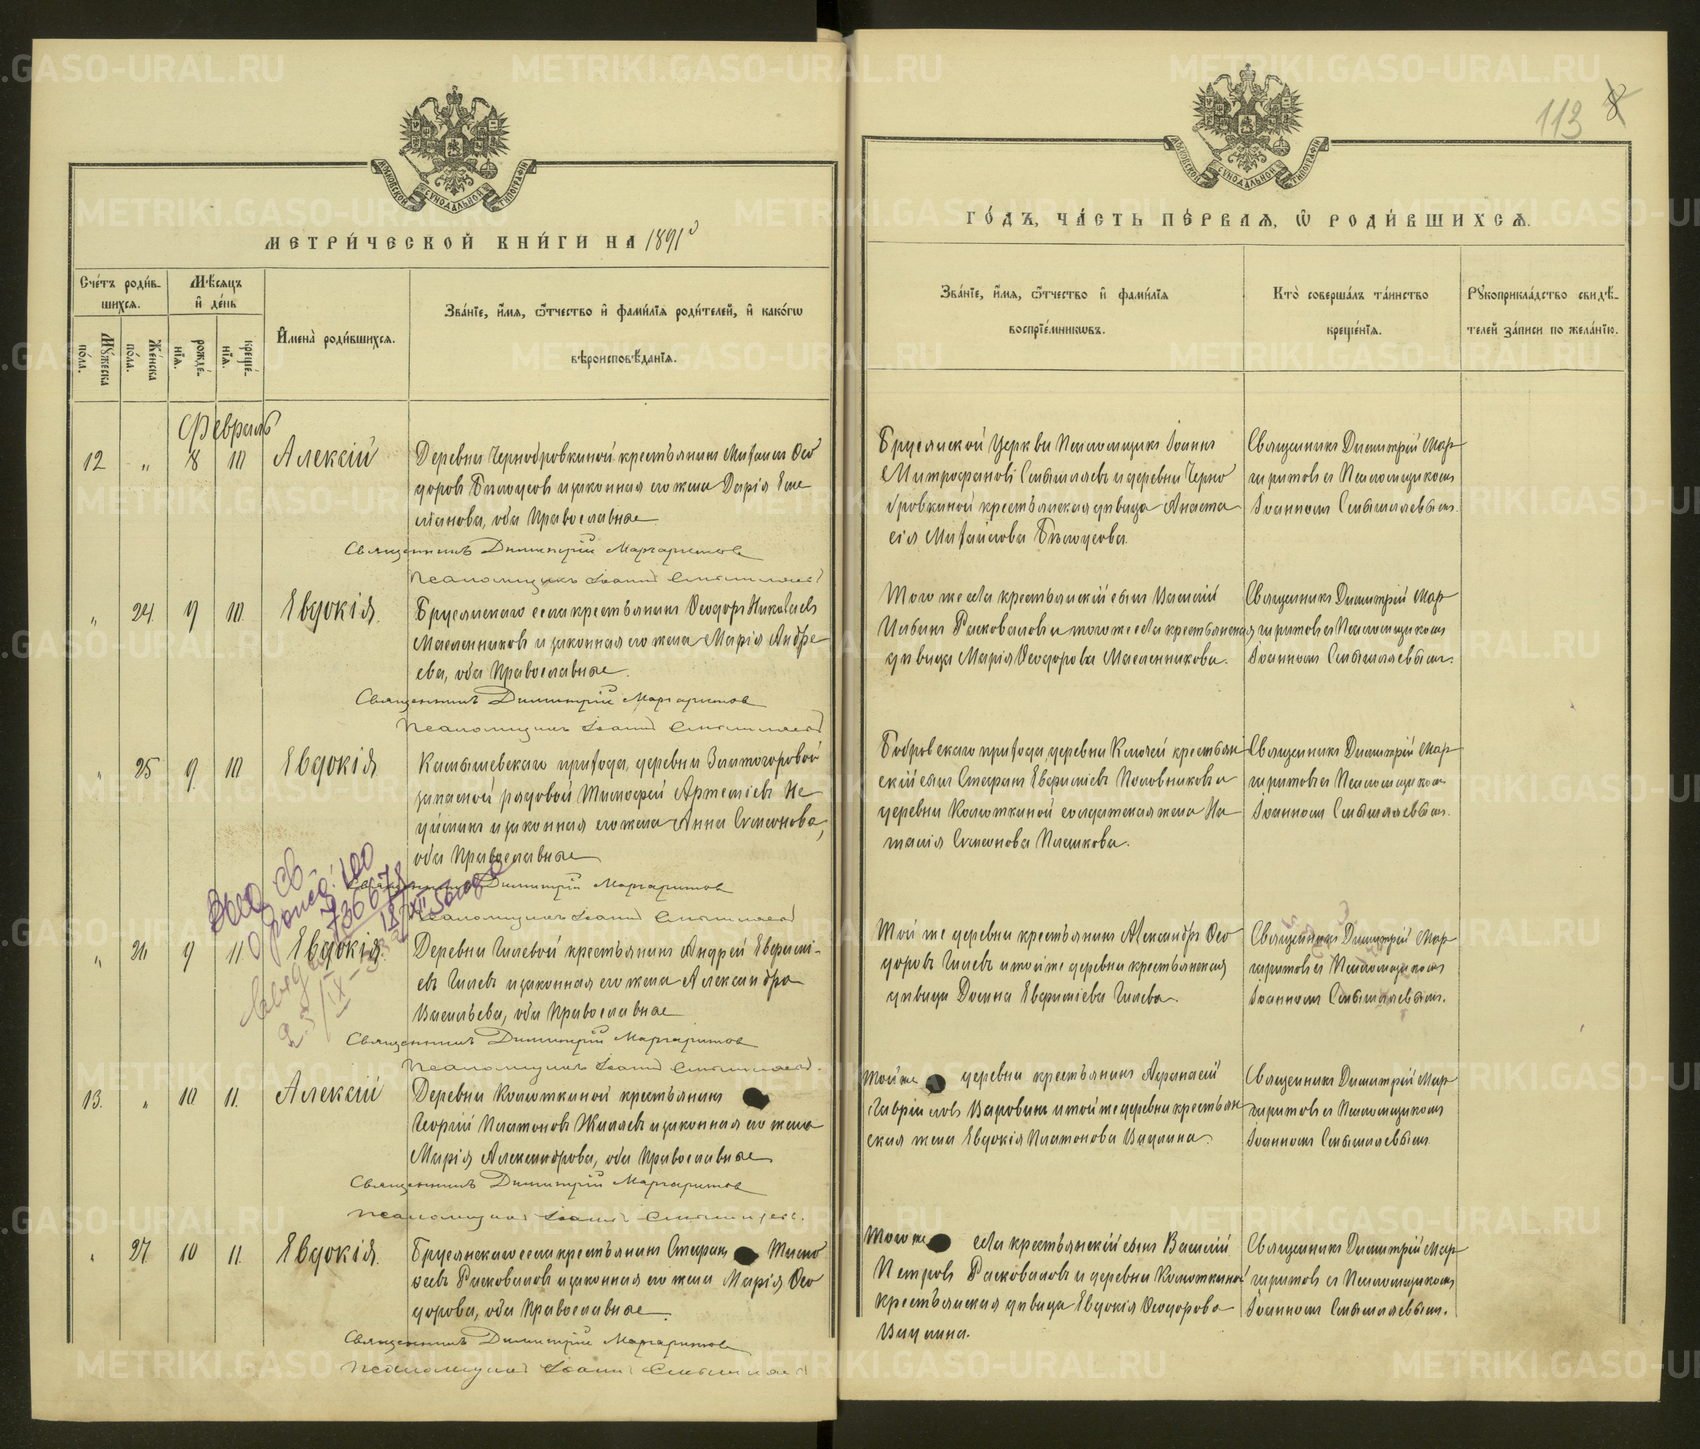 МЕТРИ́ЧЕСКОЙ КНИ́ГИ НА 1891
Сче́тъ роди́в-
шихся.
Мѣсяцъ
и҆ де́нь
Му́жеска по́ла.
Же́нска по́ла.
рожде́-нїя.
креще́-нїя.
И҆мена̀ роди́вшихся.
Зва́нїе, и҆́мя, ѻ҆́тчество и҆ фами́лїя роди́телей, и҆ како́гѡ
вѣроисповѣ́данїя.
Февраль
12 " 8 10 Алексій
Деревни Чернобровкиной крестьянинъ Михаилъ Ѳео
доровъ Бѣлоусовъ и законная его жена Дарія
оба Православные
Священникъ Димитрій Маргаритовъ
Псаломщикъ Іоаннъ Смышляевъ
" 24 9 10 Евдокія.
Бруснянскаго села крестьянинъ Ѳеодоръ Николаевъ
Масленниковъ и законная его жена Марія Андре
ева, оба Православные.
Священникъ Димитрій Маргаритовъ
Псаломщикъ Іоаннъ Смышляевъ
" 25 9 10 Евдокія
Камышевскаго прихода, деревни Златогоровой
запасной рядовой Тимофей Артеміевъ Не
и законная его жена Анна Симеонова,
оба Православные
Священникъ Димитрій Маргаритовъ
Псаломщикъ Іоаннъ Смышляевъ
" 26 9 11 Евдокія.
Деревни Гилевой крестьянинъ Андрей Евфимі-
евъ Гилевъ и законная его жена Александра
Васильева, оба Православные
Священникъ Димитрій Маргаритовъ
Псаломщикъ Іоаннъ Смышляевъ
13. " 10 11. Алексій
Деревни Колюткиной крестьянинъ
Георгій Платоновъ Жиляевъ и законная его жена
Марія Александрова, оба Православные
Священникъ Димитрій Маргаритовъ
Псаломщикъ Іоаннъ Смышляевъ.
" 27 10 11. Евдокія.
Бруснянскаго села крестьянинъ Стефанъ Тимо
ѳеевъ Расковаловъ и законная его жена Марія Ѳео
дорова, оба Православные
Священникъ Димитрій Маргаритовъ
Псаломщикъ Іоаннъ Смышляевъ
113
ГО́ДЪ, ЧА́СТЬ ПЕ́РВАЯ, Ѡ҆ РОДИ́ВШИХСЯ.
Зва́нїе, и҆́мя, ѻ҆́тчество и҆ фами́лїя
воспрїе́мниковъ.
Кто̀ соверша́лъ та́инство
креще́нїя.
Рꙋкоприкла́дство свидѣ́-
телей за́писи по жела́нїю.
Бруснянской Церкви Псаломщикъ Іоаннъ
Митрофановъ Смышляевъ и деревни Черно
бровкиной крестьянская дѣвица Анаста
сія Михайлова Бѣлоусова
Священникъ Димитрій Мар
гаритовъ съ Псаломщикомъ
Іоанномъ Смышляевымъ.
Того же села крестьянскій сынъ Василій
Ильинъ Расковаловъ и того же села крестьянская
дѣвица Марія Ѳеодорова Масленникова.
Священникъ Димитрій Мар
гаритовъ съ Псаломщикомъ
Іоанномъ Смышляевымъ.
Бобровскаго прихода, деревни Ключей крестьян
скій сынъ Стефанъ Евфиміевъ Половниковъ и
деревни Колюткиной солдатская жена На
талія Симеонова Плешкова.
Священникъ Димитрій Мар
гаритовъ съ Псаломщикомъ
Іоанномъ Смышляевымъ.
Той же деревни крестьянинъ Александръ Ѳео
доровъ Гилевъ и той же деревни крестьянская
дѣвица Домна Евфиміева Гилева.
Священникъ Димитрій Мар
гаритовъ съ Псаломщикомъ
Іоанномъ Смышляевымъ.
Той же деревни крестьянинъ Афанасій
Гавріиловъ и той же деревни крестьян
ская жена Евдокія Платонова
Священникъ Димитрій Мар
гаритовъ съ Псаломщикомъ
Іоанномъ Смышляевымъ
Того же села крестьянскій сынъ Василій
Петровъ Расковаловъ и деревни Колюткиной
крестьянская дѣвица Евдокія Ѳеодорова
Священникъ Димитрій Мар
гаритовъ съ Псаломщикомъ
Іоанномъ Смышляевымъ.
METRIKI.GASO-URAL.RU